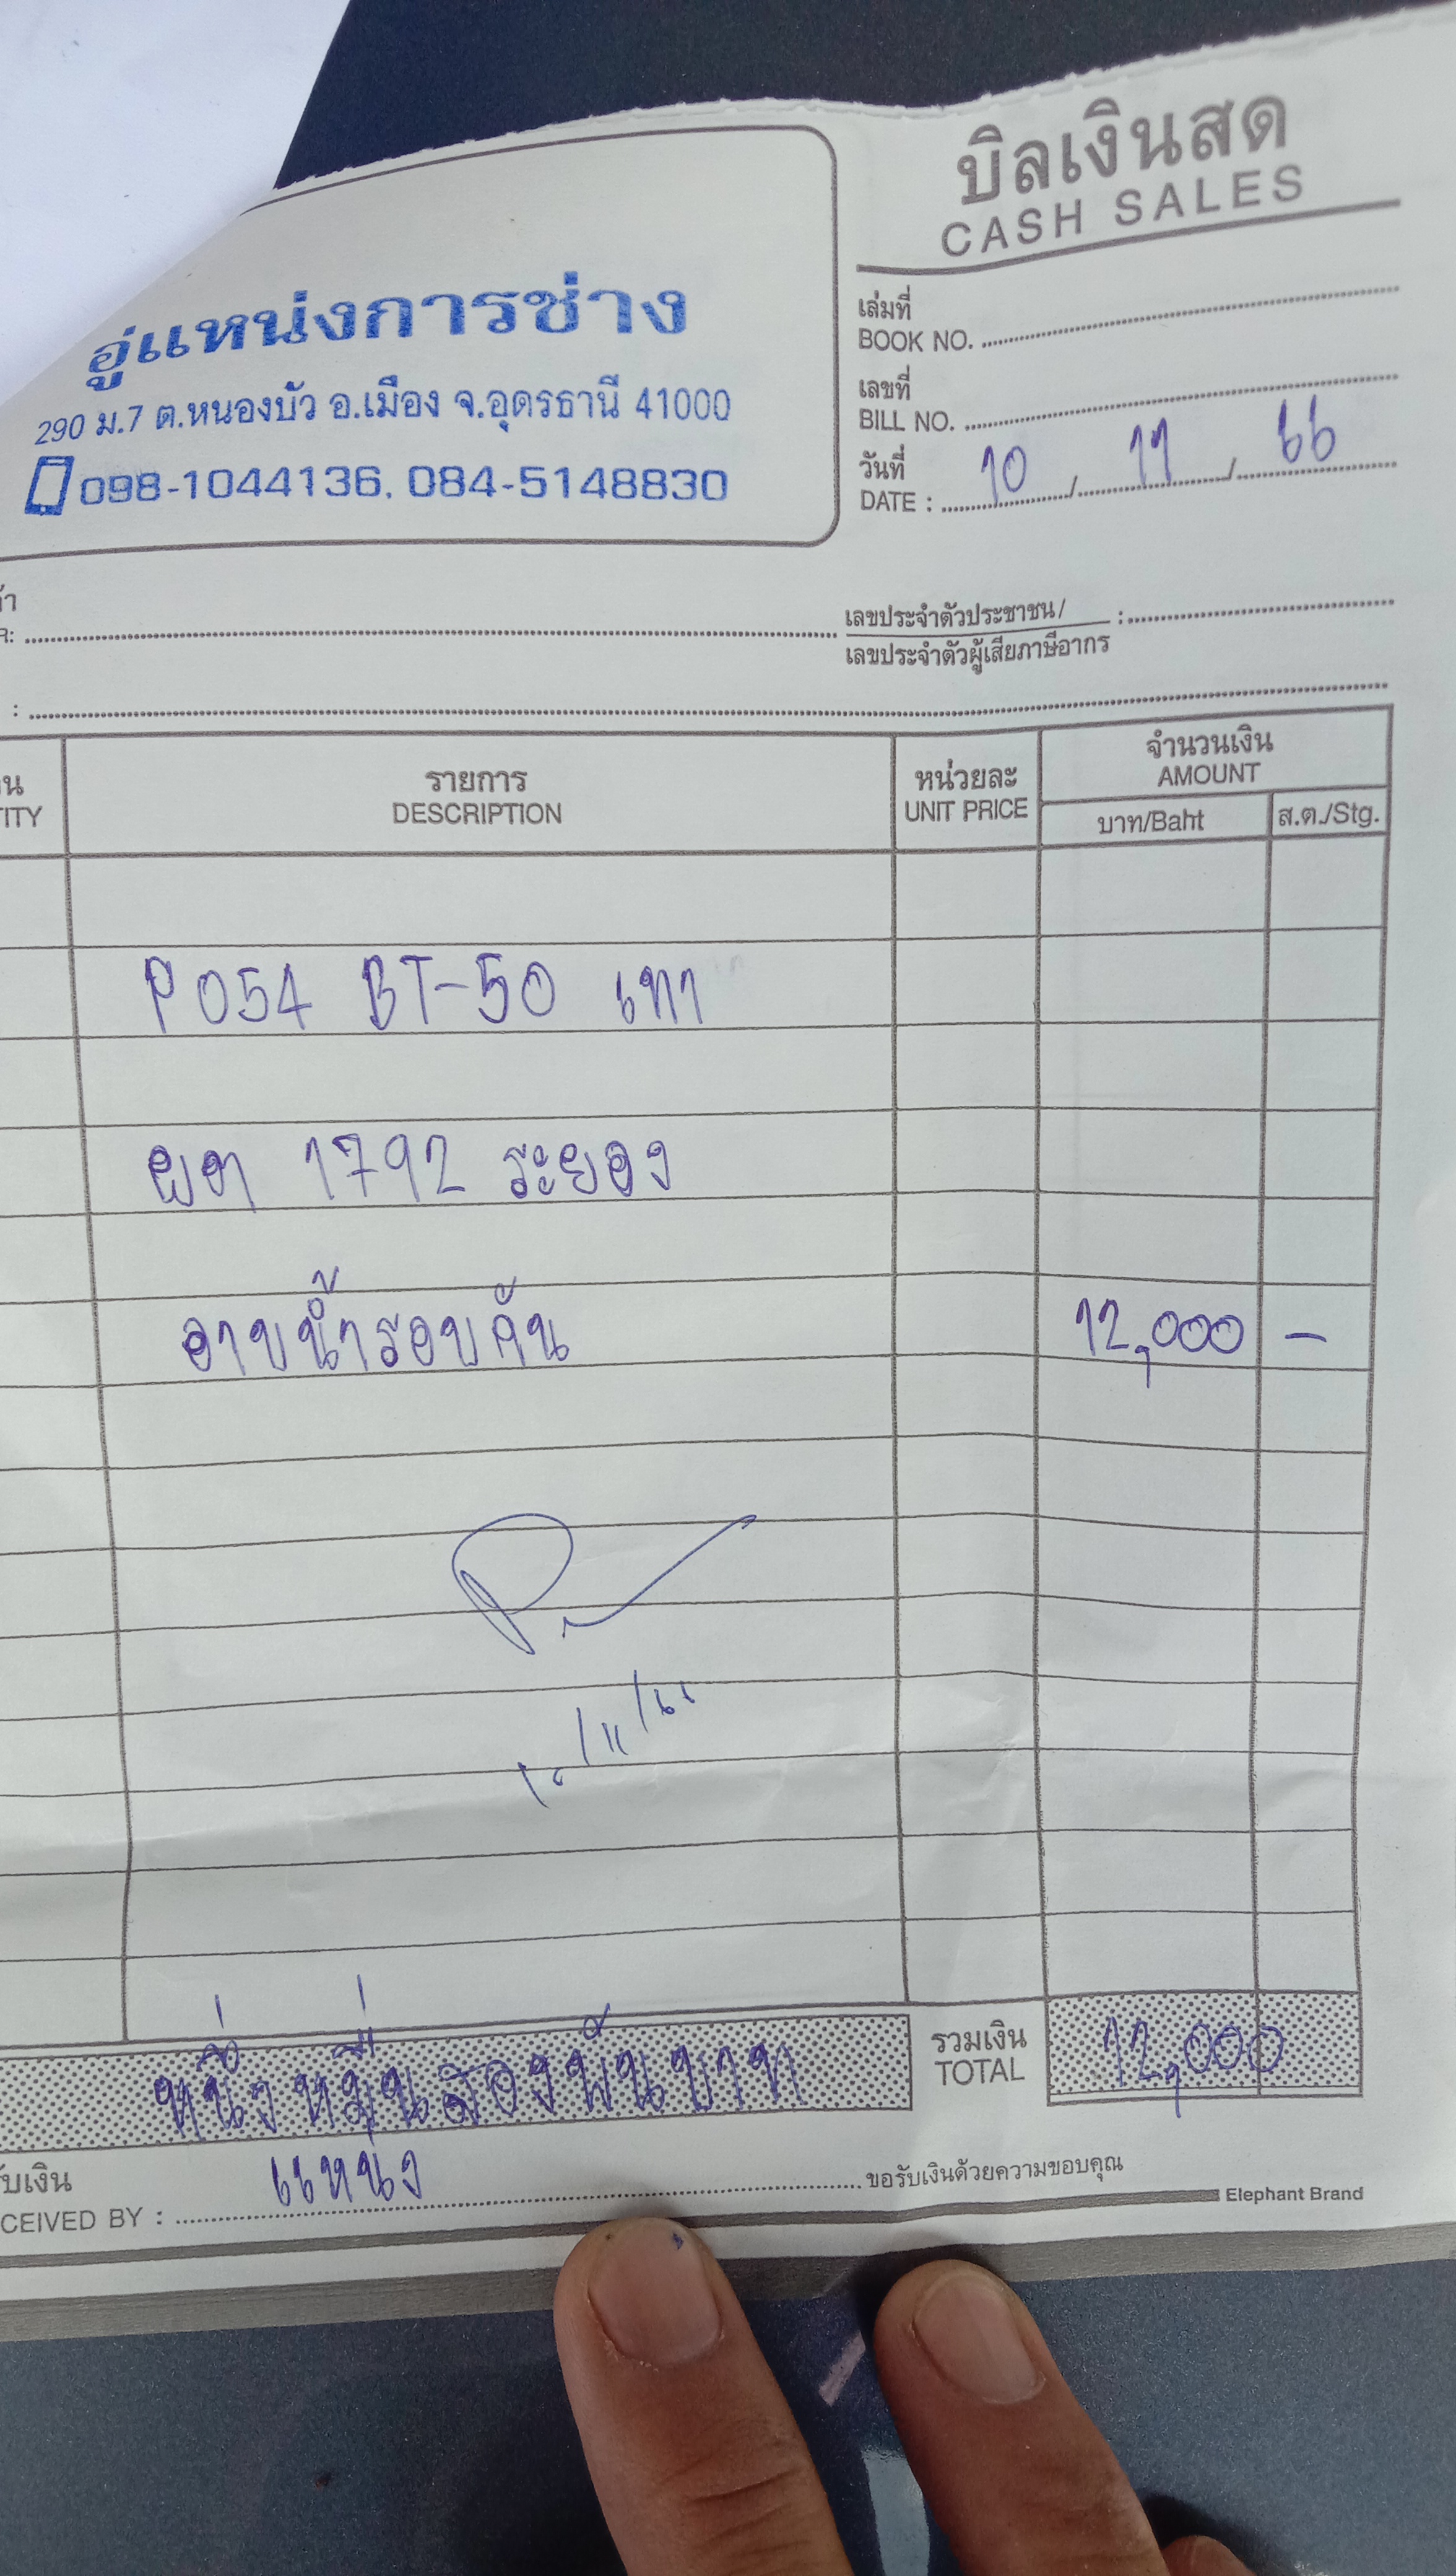 บิลเงินสด
CASH SALES
อู่แหน่งการช่าง
290 ม.7 ต.หนองบัว อ.เมือง จ.อุดรธานี 41000
098-1044136, 084-5148830
เล่มที่
BOOK NO.
เลขที่
BILL NO.
วันที่ 10 / 11 / 66
DATE :
R:
เลขประจำตัวประชาชน/ :
เลขประจำตัวผู้เสียภาษีอากร
:
รายการ หน่วยละ จำนวนเงิน
TITY DESCRIPTION UNIT PRICE AMOUNT
บาท/Baht ส.ต./Stg.
P054 BT-50 เทา
ผต 1792 ระยอง
อาบน้ำรอบคัน 12,000 –
10/11/66
หนึ่งหมื่นสองพันบาท รวมเงิน 12,000
TOTAL
ับเงิน แหน่ง ขอรับเงินด้วยความขอบคุณ
CEIVED BY :
Elephant Brand